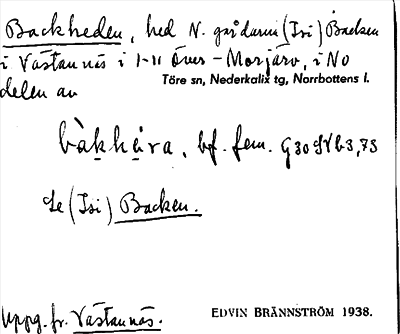 Backheden, hed N. gårdarna (Isi) Backen
i Västannäs i 1-11 Över-Morjärv, i NO
Töre sn, Nederkalix tg, Norrbottens l.
delen av
bàkhe̱ra, bf. fem. G30 SV b3,75
Se (Isi) Backen.
Uppg. fr. Västannäs.
EDVIN BRÄNNSTRÖM 1938.